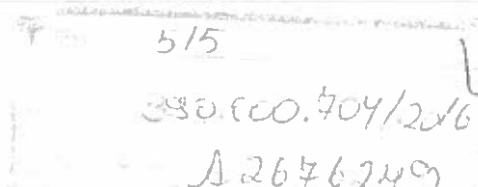 515
390.000.704/2016
A2676249